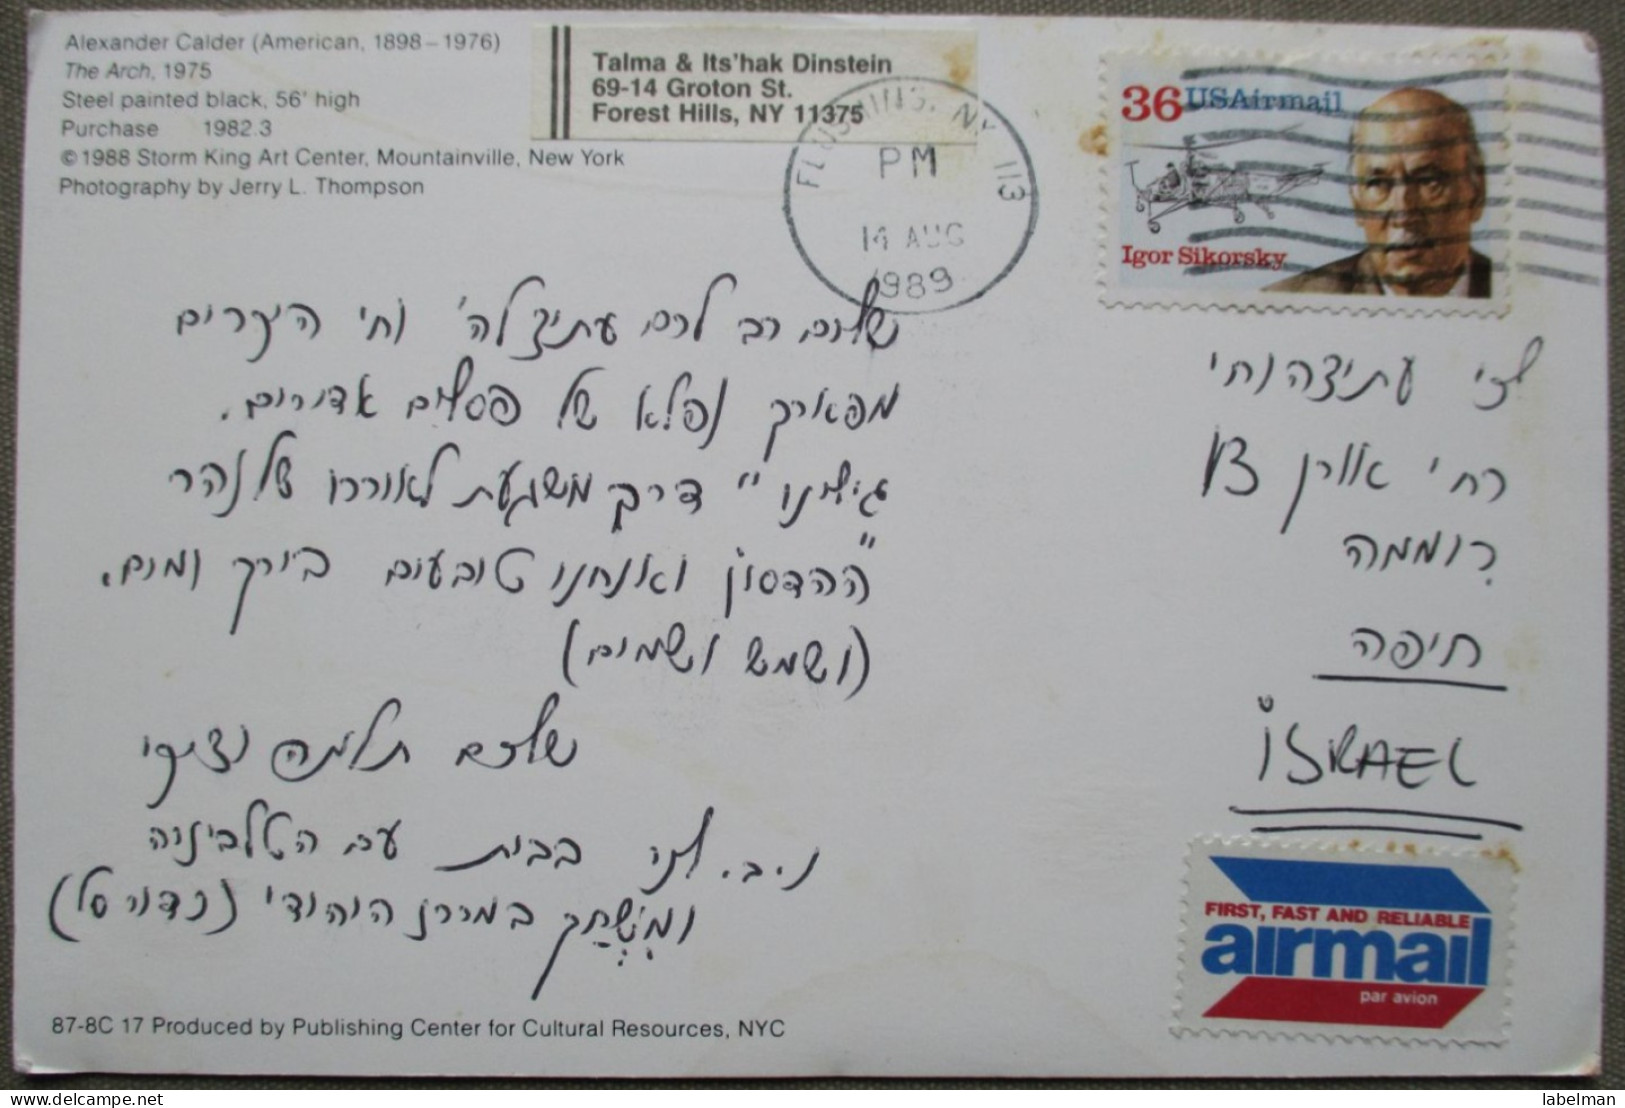 Alexander Calder (American, 1898–1976)
The Arch, 1975
Steel painted black, 56' high
Purchase 1982.3
©1988 Storm King Art Center, Mountainville, New York
Photography by Jerry L. Thompson
Talma & Its'hak Dinstein
69-14 Groton St.
Forest Hills, NY 11375
FLUSHING, NY 113
PM
14 AUG
1989
36 USAirmail
Igor Sikorsky
שלום רב לכם, עתיצה וחי היקרים
מפארק נפלא של פסלים אדירים.
גילינו " דרך משגעת לאורכו של נהר
ההדסון" ואנחנו טובעים בירק ומים.
(ושמש ושמים)
שלכם תלמה וציקי
נ.ב. בבית עם הטלביזיה
ומשחק במרכז היהודי (כדורסל)
עתיצה וחי
רח' אורן
רוממה
חיפה
ISRAEL
FIRST, FAST AND RELIABLE
airmail
par avion
87-8C 17 Produced by Publishing Center for Cultural Resources, NYC
www.delcampe.net
labelman